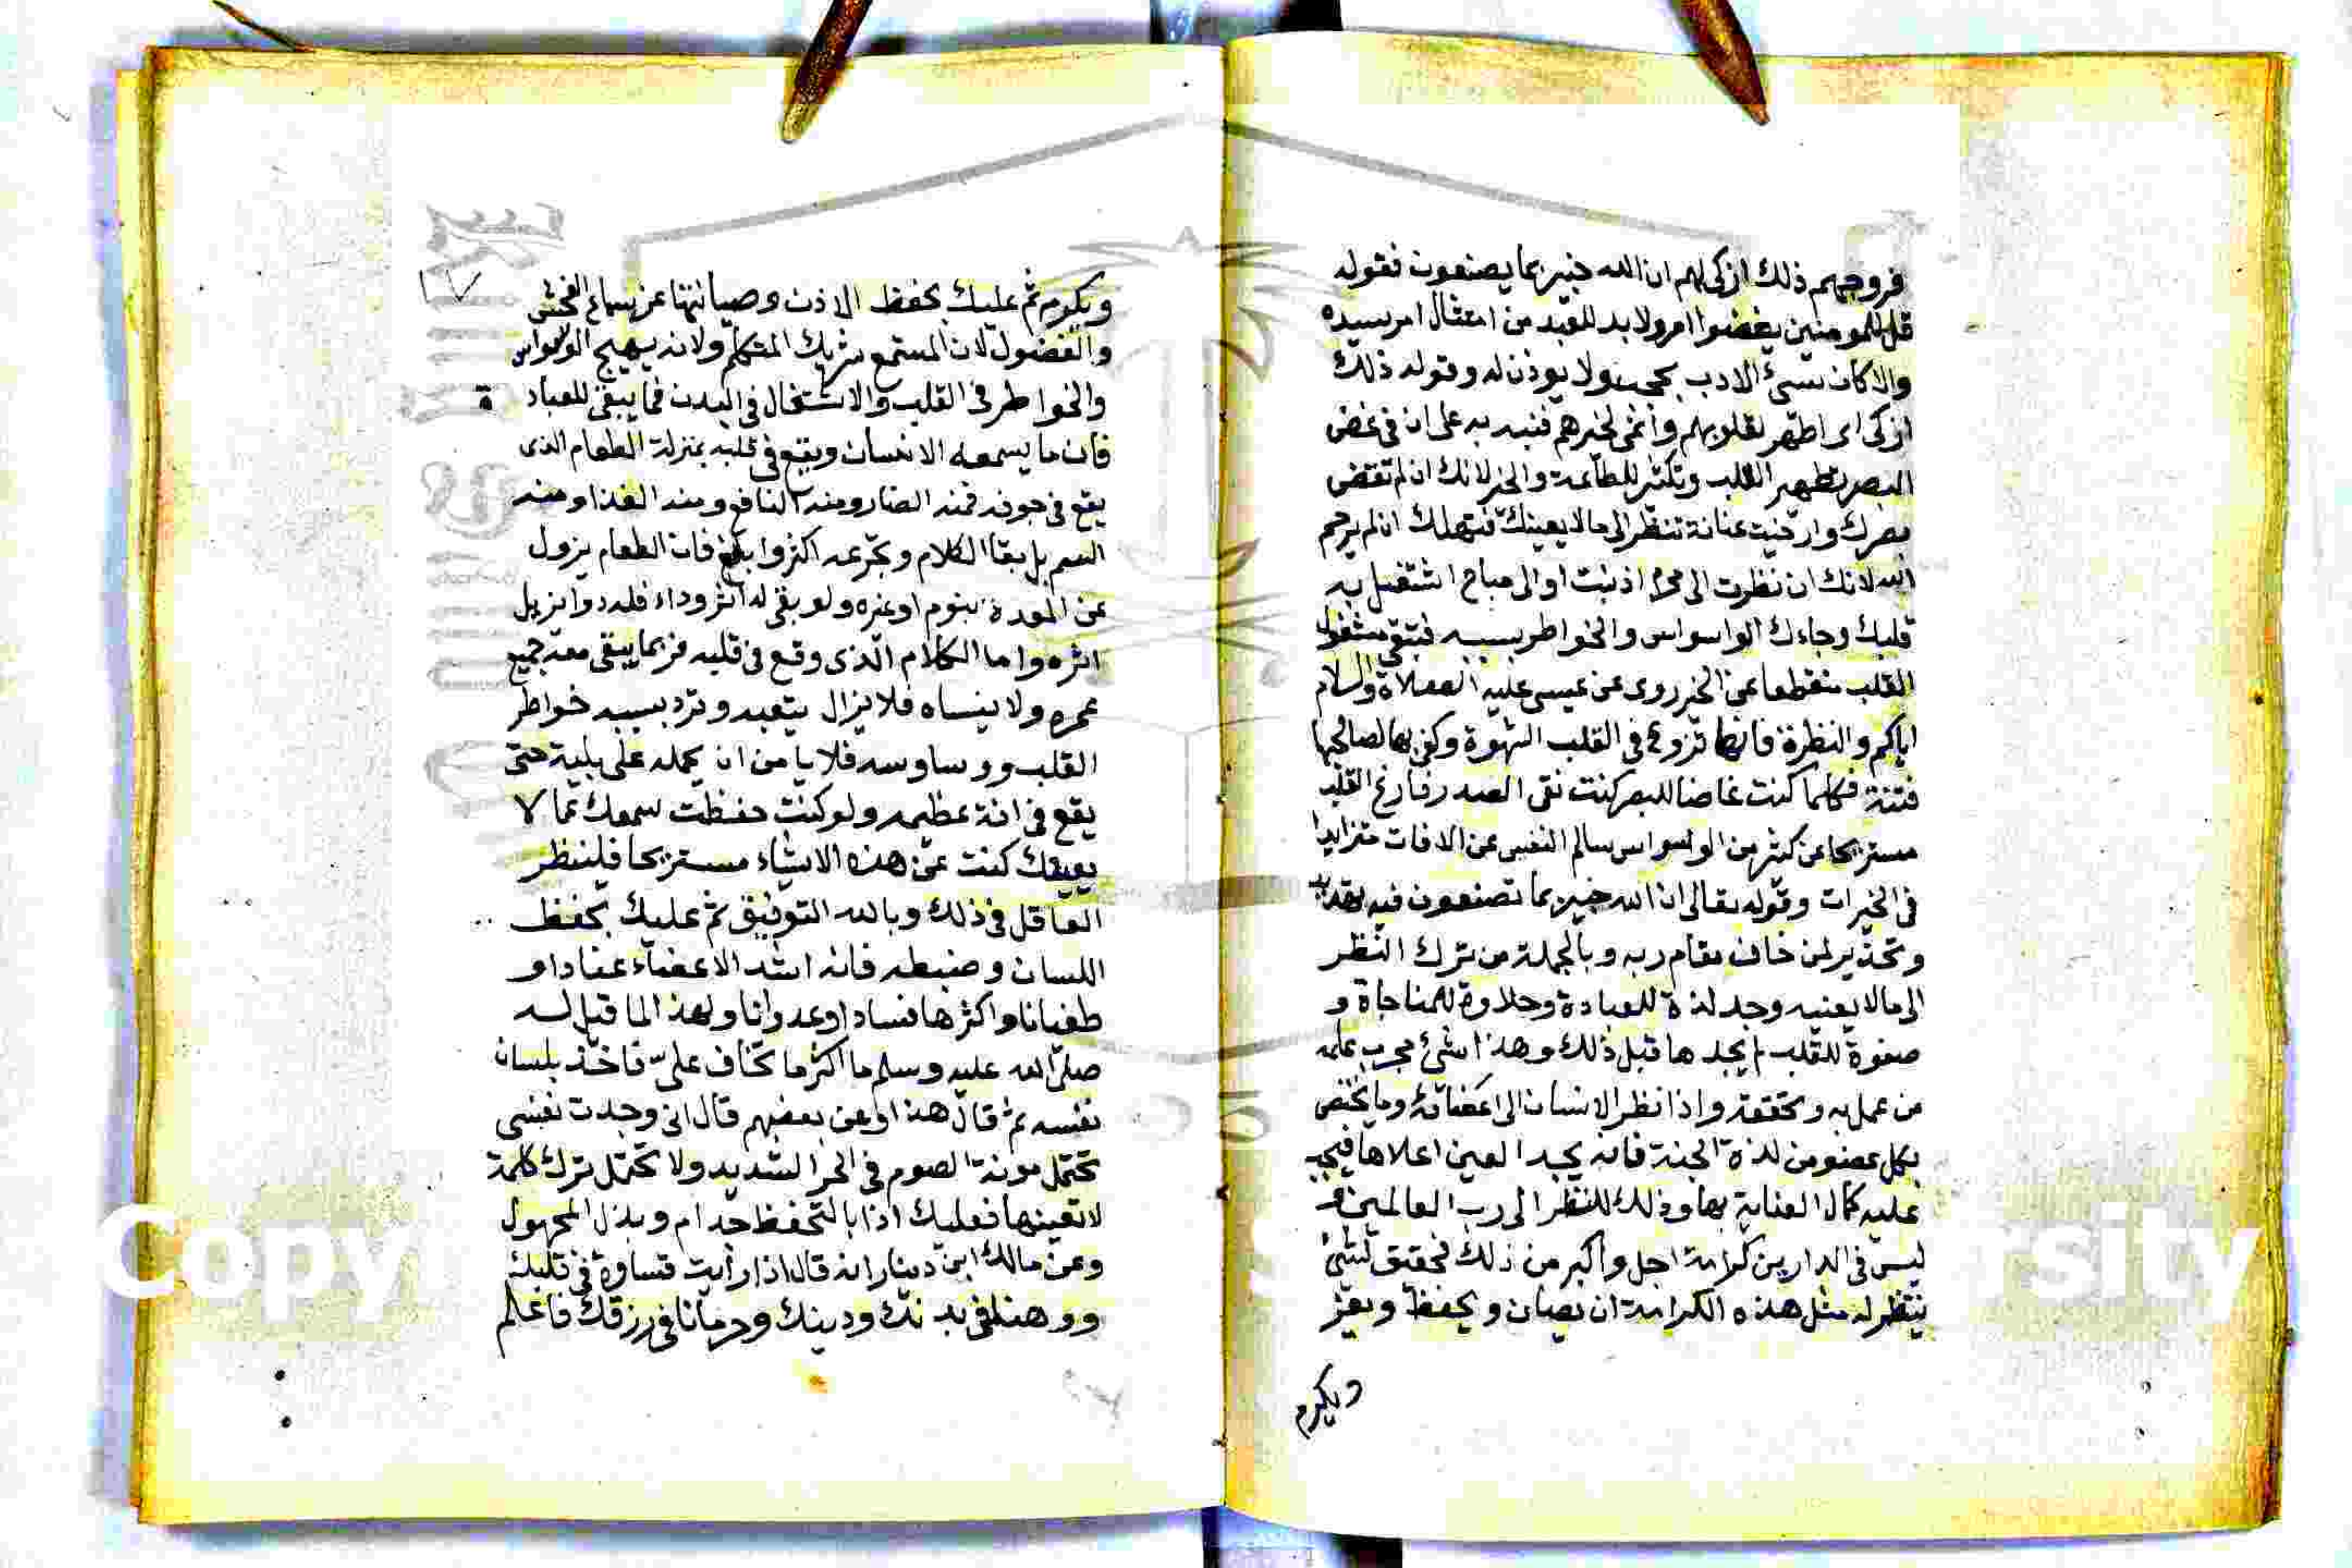 فروجهم ذلك ازكى لهم ان الله خبير بما يصنعون فقوله
قل للمومنين يغضوا امر ولا بد للعبد من امتثال امر سيده
والا كان سىء الادب ولا يوذن له وقوله ذلك
ازكى اى اطهر لقلوبهم وانمى لخيرهم فنبه به على ان فى غض
البصر تطهير القلب وتكثير للطاعة والخير لانك ان لم تغض
بصرك وارخيت عنانه تنظر الى مالا يعينك فتهلك ان لم يرحم
الله لانك ان نظرت الى محرم اذنبت او الى مباح اشتغل به
قلبك وجاءك الواسواس والخواطر بسببه فتبقى مشغول
القلب منقطعا عن الخير روى عن عيسى عليه الصلاة والسلام
اياكم والنظرة فانها تزرع فى القلب الشهوة وكفى بها لصاحبها
فتنة فكلما كنت غاضا للبصر كنت نقى الصدر فارغ القلب
مستريحا عن كثير من الوسواس سالم النفس عن الافات متزايدا
فى الخيرات وقوله تعالى ان الله خبير بما تصنعون فيه تهديد
وتحذير لمن خاف مقام ربه وبالجملة من ترك النظر
الى مالا يعنيه وجد لذة للعبادة وحلاوة للمناجاة و
صفوة للقلب لم يجدها قبل ذلك وهذا شئ مجرب علمه
من عمل به وتحققه واذا نظر الانسان الى اعضائه وما يختص
بكل عضو من لذة الجنة فانه يجد العين اعلاها فيجب
عليه كمال العناية بها وذلك للنظر الى رب العالمين و
ليس فى الدارين كرامة اجل واكبر من ذلك فحقيق لشئ
ينتظر له مثل هذه الكرامة ان يصان ويحفظ ويعز
ويكرم
١٧
ويكرم ثم عليك بحفظ الاذن وصيانتها عن سماع الفحش
والفضول لان المستمع شريك المتكلم ولانه يهيج الوسواس
والخواطر فى القلب والاشتغال فى البدن فما يبقى للعبادة
فان ما يسمعه الانسان ويقع فى قلبه بمنزلة الطعام الذى
يقع فى جوفه فمنه الضار ومنه النافع ومنه الغذا ومنه
السم بل بقا الكلام وتجرعه اكثر وابلغ فان الطعام يزول
عن المعدة بنوم او غيره ولو بقى له اثر وداء فله دوا يزيل
اثره واما الكلام الذى وقع فى قلبه فربما يبقى معه جميع
عمره ولا ينساه فلا يزال يتعبه وترد بسببه خواطر
القلب ووساوسه فلا يامن ان يحمله على بلية حتى
يقع فى افة عظيمه ولو كنت حفظت سمعك عما لا
يعيقك كنت عن هذه الاشياء مستريحا فلينظر
العاقل فى ذلك وبالله التوفيق ثم عليك بحفظ
اللسان وضبطه فانه اشد الاعضاء عنادا و
طغيانا واكثرها فسادا وعدوانا ولهذا لما قيل له
صلى الله عليه وسلم ما اكثر ما تخاف على فاخذ بلسان
نفسه ثم قال هذا وعن بعضهم قال انى وجدت نفسى
تحتمل مونة الصوم فى الحر الشديد ولا تحتمل ترك كلمة
لا تعينها فعليك اذا بالتحفظ جدا وبذل المجهول
وعن مالك ابن دينار انه قال اذا رأيت قساوة فى قلبك
ووهنا فى بدنك ودينك وحرمانا فى رزقك فاعلم